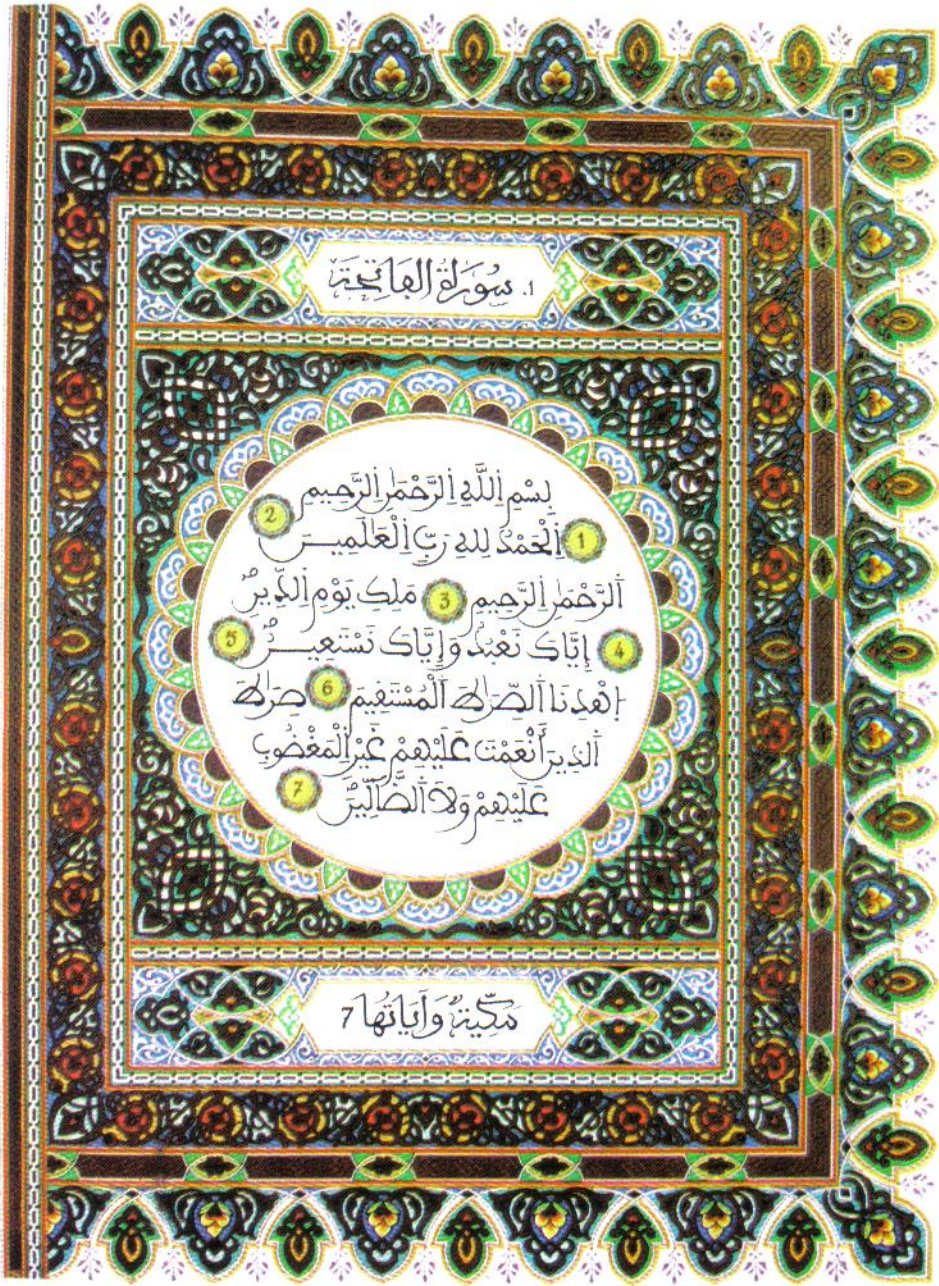 1. سُورَةُ الفَاتِحَة
بِسْمِ اِللَّهِ اِلرَّحْمَٰنِ اِلرَّحِيمِ
1 اَلْحَمْدُ لِلهِ رَبِّ اِلْعَٰلَمِينَ 2
اَلرَّحْمَٰنِ اِلرَّحِيمِ 3 مَلِكِ يَوْمِ اِلدِّينِ
4 إِيَّاكَ نَعْبُدُ وَإِيَّاكَ نَسْتَعِينُ 5
اِهْدِنَا اَلصِّرَٰطَ اَلْمُسْتَقِيمَ 6 صِرَٰطَ
اَلذِينَ أَنْعَمْتَ عَلَيْهِمْ غَيْرِ اِلْمَغْضُوبِ
عَلَيْهِمْ وَلَا اَلضَّآلِّينَ 7
مَكِّيَّة وَآيَاتُهَا 7